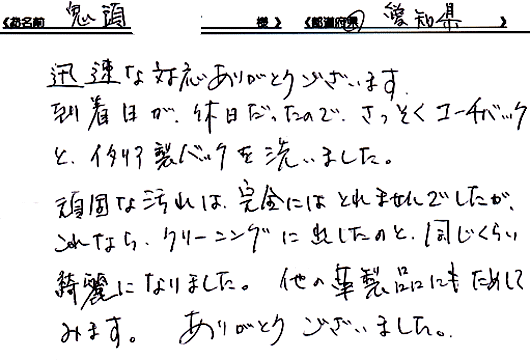 《お名前 鬼頭 様》 《都道府県 愛知県 》
迅速な対応ありがとうございます。
到着日が、休日だったので、さっそくコーチバック
と、イタリア製バックを洗いました。
頑固な汚れは、完全にはとれませんでしたが、
これなら、クリーニングに出したのと、同じくらい
綺麗になりました。他の革製品にもためして
みます。 ありがとうございました。